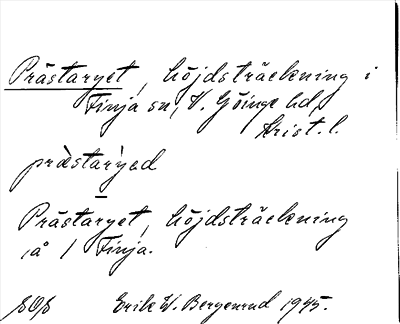 Prästaryet, höjdsträckning i
Finja sn, V. Göinge hd,
Krist. l.
præ̀starỳed
Prästaryet, höjdsträckning
å / Finja.
SOS Erik W. Bergenrud 1945.